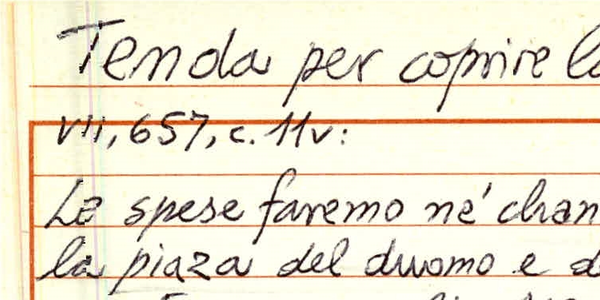 Tenda per coprire la
VII, 657, c. 11v:
Le spese faremo ne' chan
la piaza del duomo e d